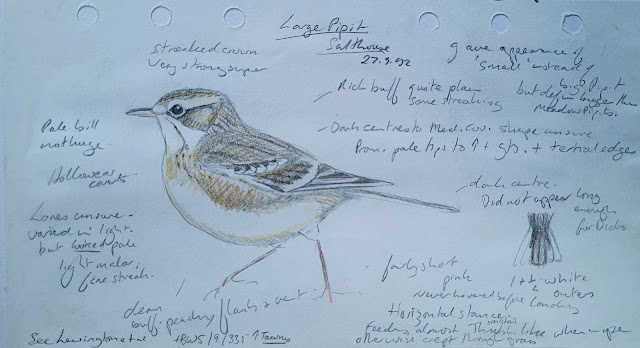 Large Pipit
Salthouse
27.9.92
streaked crown
very strong super
gave appearance of
'small' instead of
big Pipit
but def. larger than
Meadow Pipits.
Rich buff quite plain
some streaking
Dark centres to Med. cov. shape unsure
Prom. pale tips to + gts. + tertial edges
Pale bill
not huge.
Hollow ear
coverts
Lores unsure -
varied in light.
but looked pale
light malar,
fine streak.
dark centre.
Did not appear long
enough
for Dicks
clean
buff-peachy flanks & vent
fairly short
pink
Never hovered before landing
1 + ½ white
outers
Horizontal stance.
Feeding almost Thrush like when in open
otherwise crept through grass
See Lewington et al
+ BWS /9/335 Towns